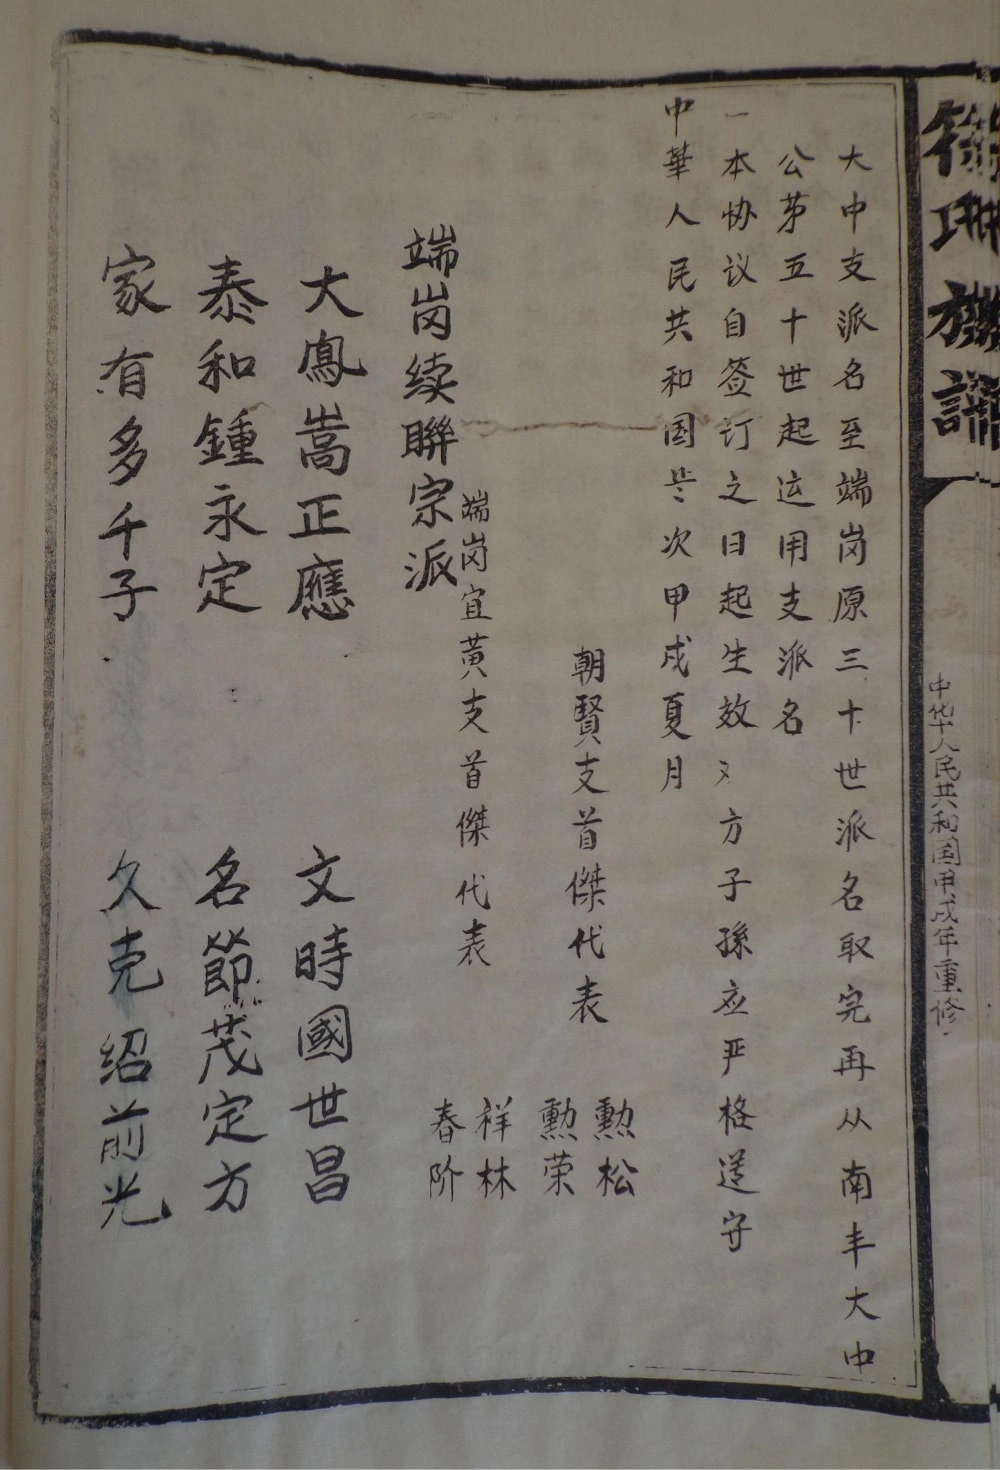 族譜
中华人民共和国甲戌年重修
大中支派名至端岗原三十世派名取完再从南丰大中
公苐五十世起运用支派名
一本协议自签订之日起生效 方子孫应严格遵守
中華人民共和国 次甲戌夏月
朝賢支首傑代表
勲松
勲荣
端岗宜黃支首傑代表
祥林
春阶
端岗续聯宗派
大鳳嵩正應 文時國世昌
泰和鍾永定 名節茂定方
家有多千子 久克绍前光